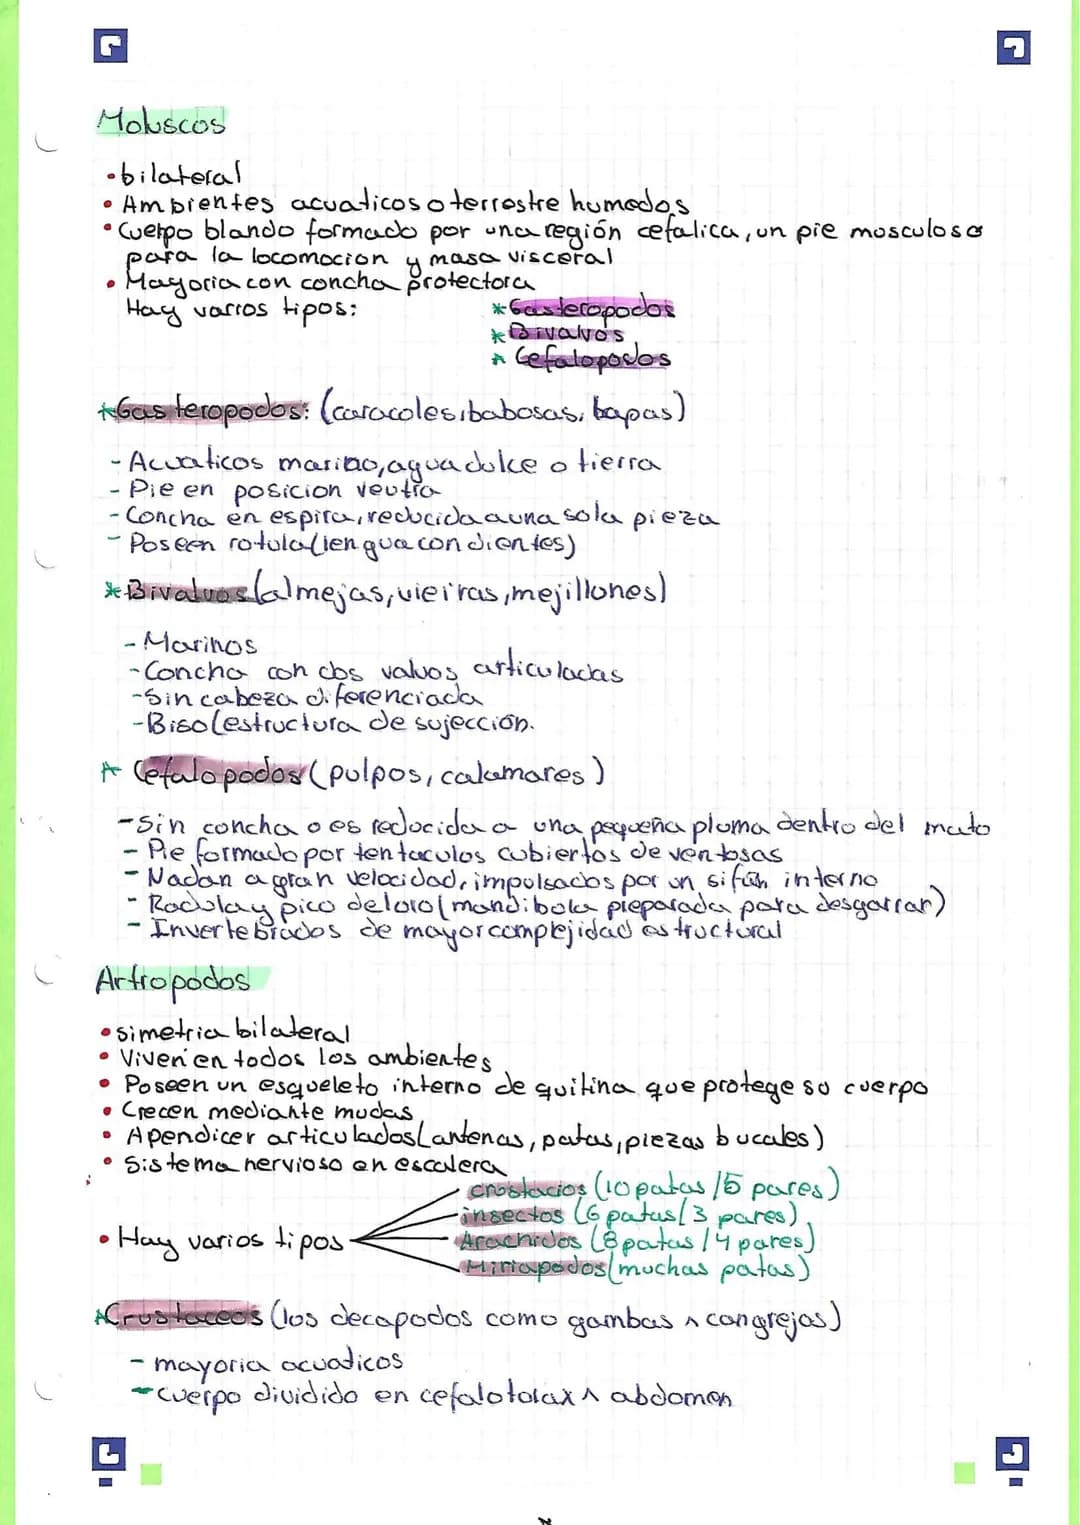 Moluscos
•bilateral
• Ambientes acuaticos o terrestre humedos
• Cuerpo blando formado por una región cefalica, un pie musculoso
para la locomocion y masa visceral
• Mayoria con concha protectora
Hay varios tipos:
*Gasteropodos
*Bivalvos
* Cefalopodos
*Gasteropodos: (caracoles, babosas, bapas)
- Acuaticos marino, agua dulce o tierra
- Pie en posicion ventra
- Concha en espira, reducida a una sola pieza
- Poseen rotula (lengua con dientes)
*Bivalvos (almejas, vieiras, mejillones)
- Marinos
- Concha con dos valvas articuladas
- Sin cabeza diferenciada
- Biso (estructura de sujección.
* Cefalopodos (pulpos, calamares)
- Sin concha o es reducida a una pequeña pluma dentro del mato
- Pie formado por tentaculos cubiertos de ventosas
- Nadan a gran velocidad, impulsados por un sifón interno
- Radula y pico de loro (mandibola preparada para desgarrar)
- Invertebrados de mayor complejidad estructural
Artropodos
• simetria bilateral
• Viven en todos los ambientes
• Poseen un esqueleto interno de quitina que protege su cuerpo
• Crecen mediante mudas
• Apendicer articulados (antenas, patas, piezas bucales)
• Sistema nervioso en escalera
crostacios (10 patas / 5 pares)
insectos (6 patas / 3 pares)
• Hay varios tipos
Arachidos (8 patas / 4 pares)
Miriapodos (muchas patas)
*Crustaceos (los decapodos como gambas ^ cangrejos)
- mayoria acuaticos
- cuerpo dividido en cefalotorax ^ abdomen